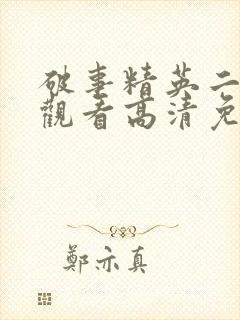 破事精英二
觀看高清免
鄭亦真